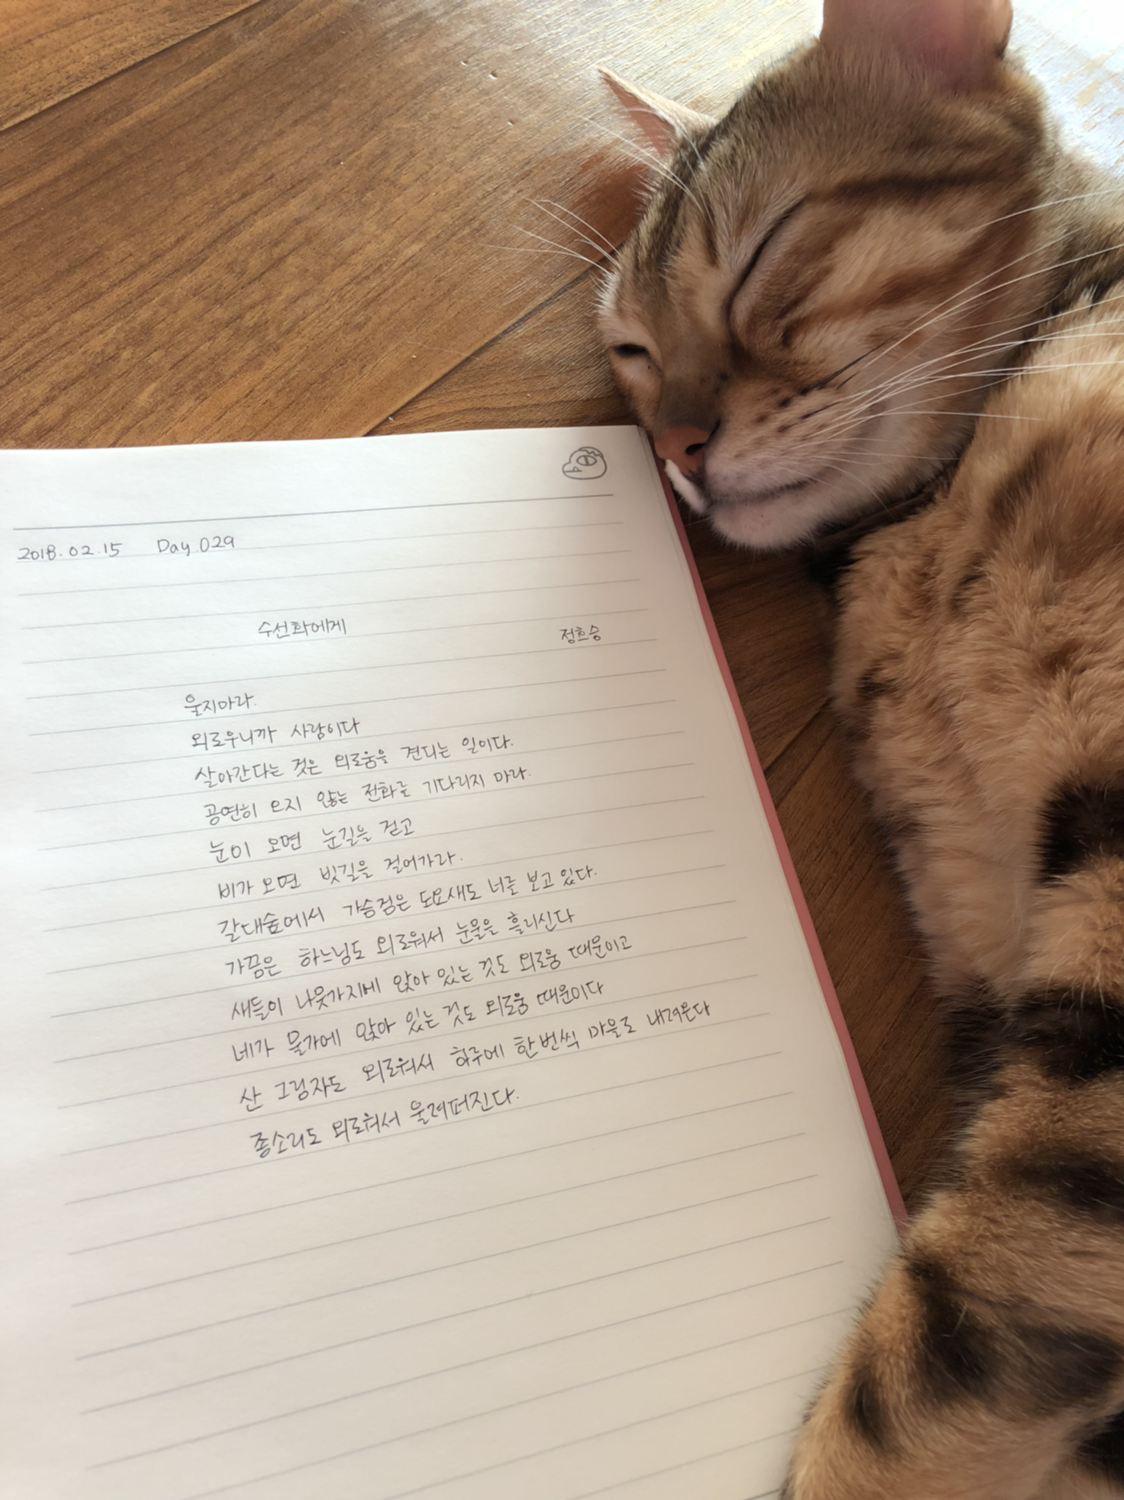 2018.02.15 Day 029
수선화에게
정호승
울지마라.
외로우니까 사람이다
살아간다는 것은 외로움을 견디는 일이다.
공연히 오지 않는 전화를 기다리지 마라.
눈이 오면 눈길을 걷고
비가 오면 빗길을 걸어가라.
갈대숲에서 가슴검은 도요새도 너를 보고 있다.
가끔은 하느님도 외로워서 눈물을 흘리신다
새들이 나뭇가지에 앉아 있는 것도 외로움 때문이고
네가 물가에 앉아 있는 것도 외로움 때문이다
산 그림자도 외로워서 하루에 한번씩 마을로 내려온다
종소리도 외로워서 울려퍼진다.